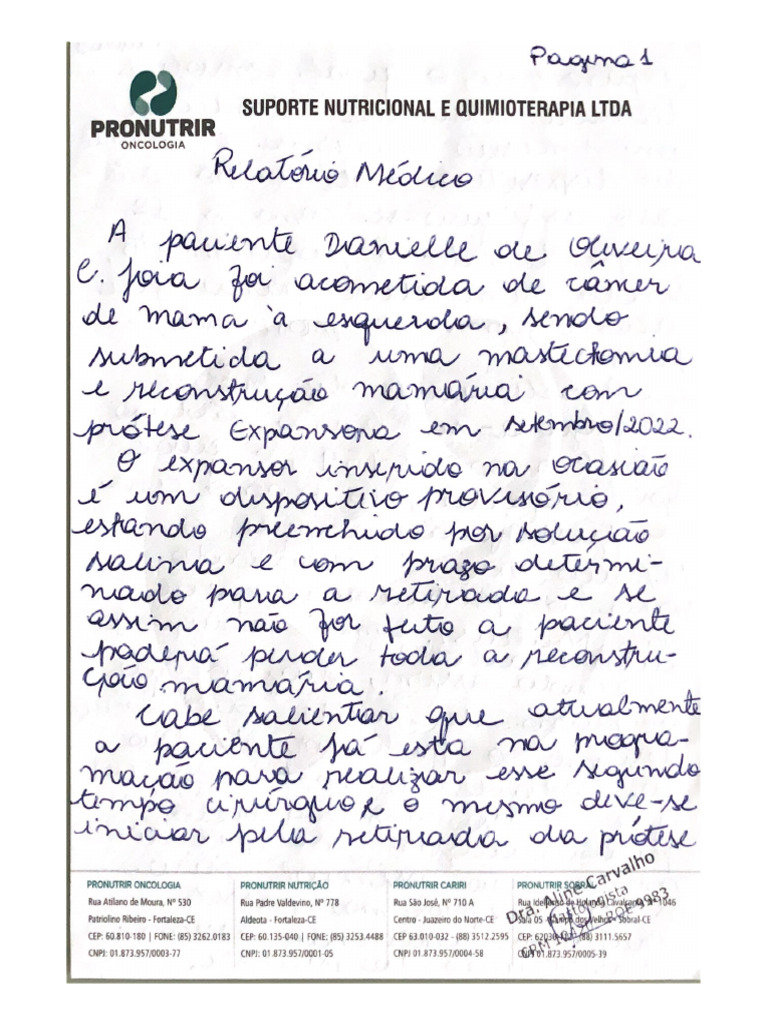 Pagina 1
PRONUTRIR
ONCOLOGIA
SUPORTE NUTRICIONAL E QUIMIOTERAPIA LTDA
Relatório Médico
A paciente Danielle de Oliveira
C. Joia foi acometida de câncer
de mama à esquerda, sendo
submetida a uma mastectomia
e reconstrução mamária com
prótese Expansora em setembro/2022.
O expansor inserido na ocasião
é um dispositivo provisório,
estando preenchido por solução
salina e com prazo determi-
nado para a retirada e se
assim não for feito a paciente
poderá perder toda a reconstru-
ção mamária.
Cabe salientar que atualmente
a paciente já esta na progra-
mação para realizar esse segundo
tempo cirúrgico e o mesmo deve-se
iniciar pela retirada da prótese
PRONUTRIR ONCOLOGIA
Rua Atilano de Moura, Nº 530
Patriolino Ribeiro - Fortaleza-CE
CEP: 60.810-180 | FONE: (85) 3262.0183
CNPJ: 01.873.957/0003-77
PRONUTRIR NUTRIÇÃO
Rua Padre Valdevino, Nº 778
Aldeota - Fortaleza-CE
CEP: 60.135-040 | FONE: (85) 3253.4488
CNPJ: 01.873.957/0001-05
PRONUTRIR CARIRI
Rua São José, Nº 710 A
Centro - Juazeiro do Norte-CE
CEP 63.010-032 - (88) 3512.2595
CNPJ: 01.873.957/0004-58
PRONUTRIR SOBRAL
Rua Holanda Cavalcante 1046
Sala 05 Campo dos Velhos - Sobral-CE
(88) 3111.5657
CNPJ 01.873.957/0005-39
Dra. Aline Carvalho
CRM RQE 9983